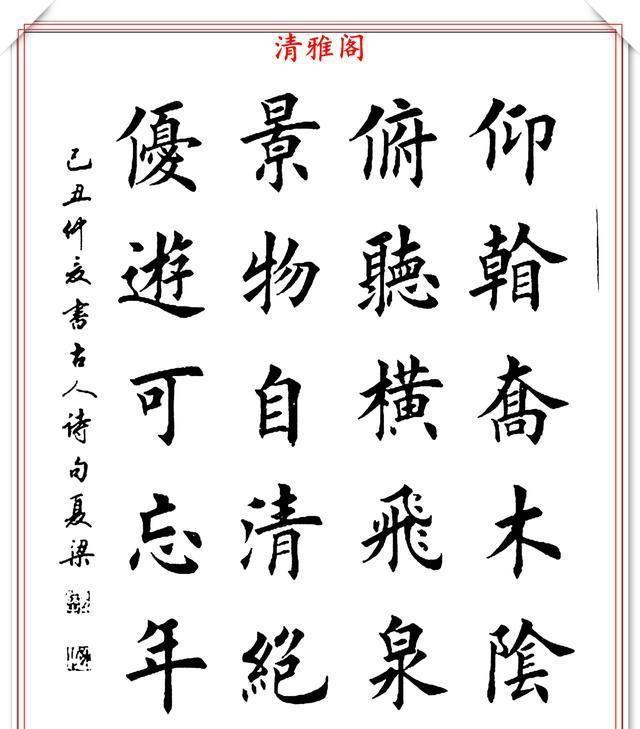 清雅阁
仰喬木陰
俯聽橫飛泉
景物自清絕
優遊可忘年
己丑仲夏書古人诗句夏梁